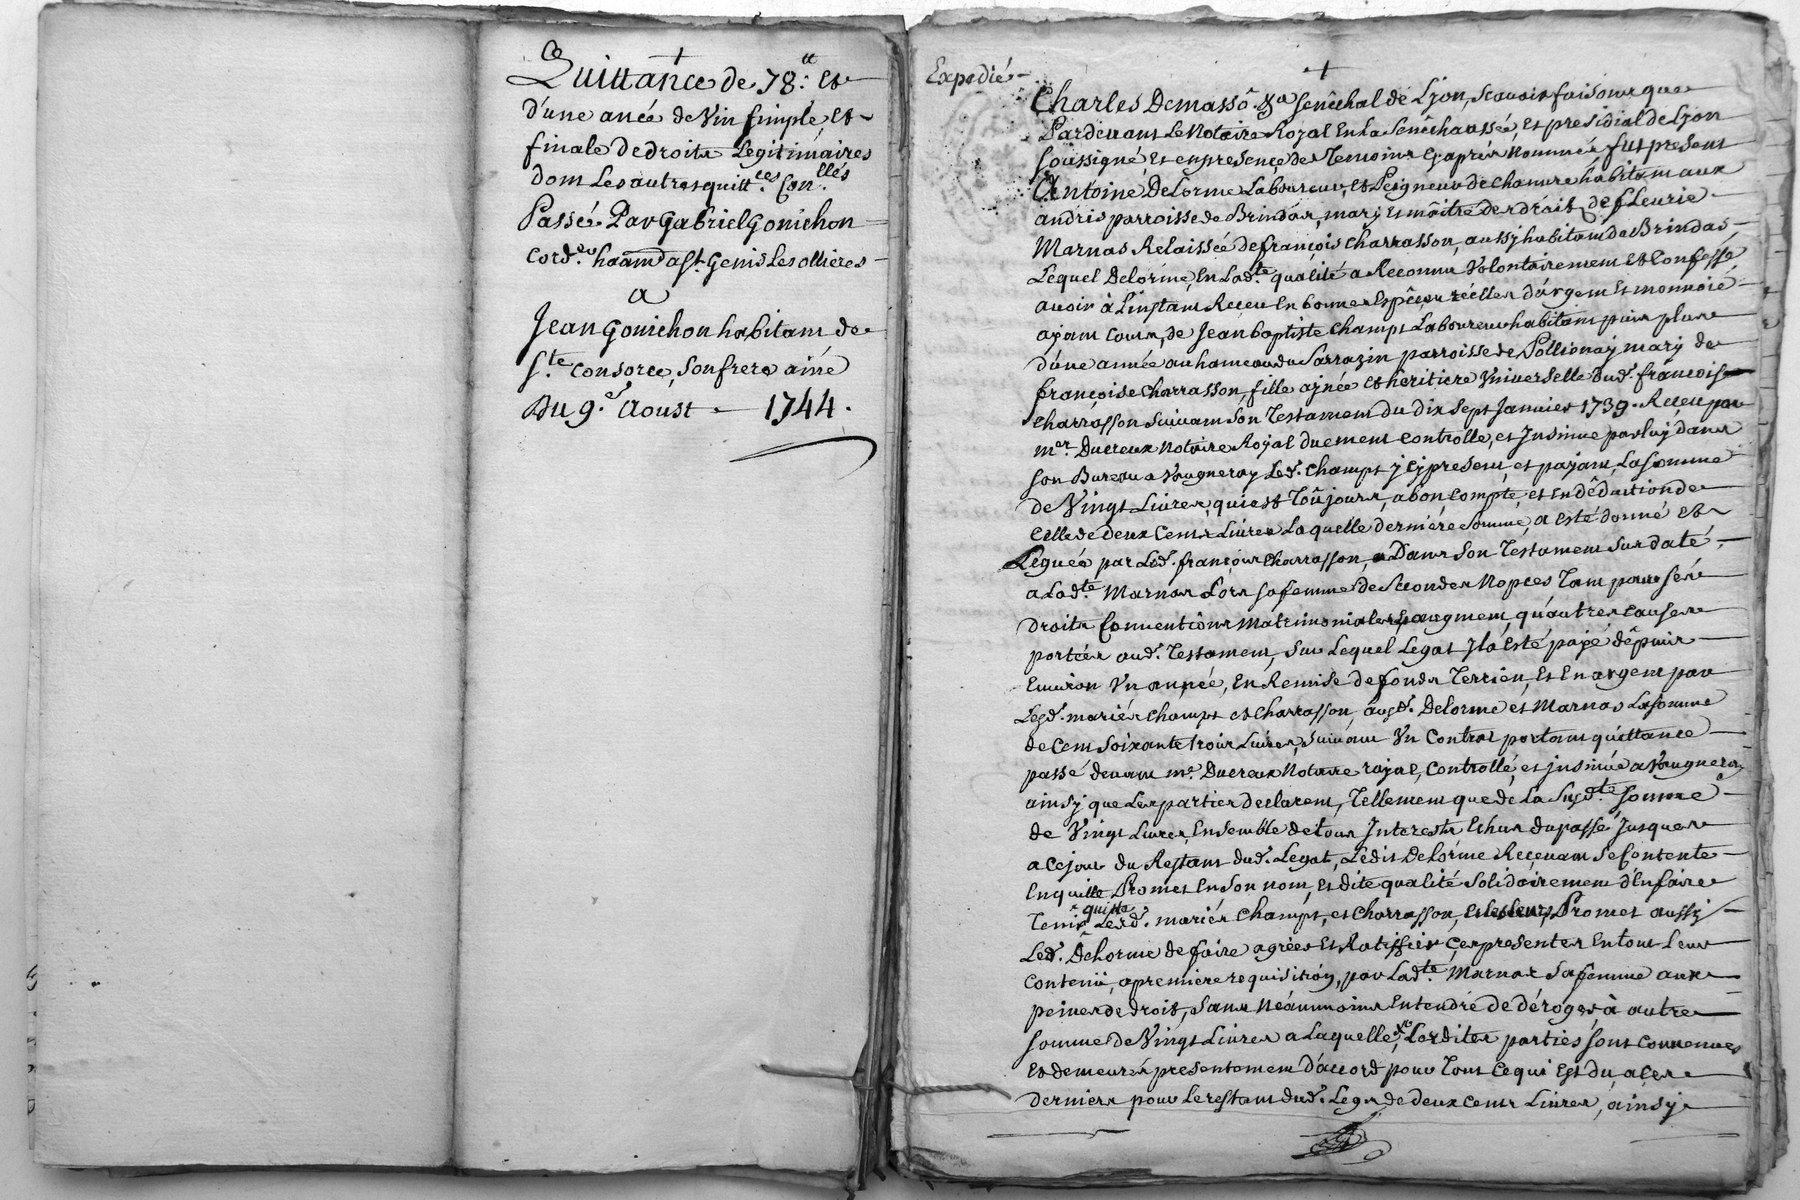 Quittance de 78.ᵗᵗ Et
d'une anée de Vin simple Et
finale de droits Legitimaires
dont Les autres quitt.ces Con.llés
Passée Par Gabriel Gonichon
Cord.er ha'ant a St. Genis Les ollières
a
Jean Gonichon habitant de
S.te Consorce, son frere ainé
Du 9.e Aoust 1744.
Expedié
Charles Demasso &a Senêchal de Lyon, scavoir faisons que
Pardevant Le Notaire Royal En La Senêchaussée, et presidial de Lyon
soussigné, et en presence des Temoins Cyaprés Nommés fut present
Antoine Delorme Laboureur, et Peigneur de chanvre habitant aux
andris parroisse de Brindas, mary et mâitre des droits de fleurie
Marnas Relaissée de françois Charrasson, aussy habitant de Brindas,
Lequel Delorme, En Lad.te qualité a Reconnu Volontairement et Confessé
avoir à L'instant Receu En bonnes Espêces réelles d'argent et monnoié
ayant Cours, de Jean baptiste Champt Laboureur habitant puis plus
d'une année au hameau du Sarrazin parroisse de Pollionay mary de
françoise Charrasson, fille ajnée et héritiere Vniverselle dud. françois
Charrasson suivant son Testament du dix sept Janvier 1739. Receu par
m.er Ducreux Notaire Royal duement Controllé, et Jnsinué par luy dans
son Bureau a Vaugneray Led. Champt j cy present, et payant, La somme
de Vingt Livres, qui est Toûjours, a bon Compte, et en dêduction de
Celle de deux Cents Livres Laquelle derniére somme, a esté donné et
Leguée par Led. françois Charrasson, Dans son Testament sus daté,
a Lad.te Marnas Lors sa femme de secondes Nopces Tant pour ses
droits Conventions Matrimoniales augment, qu'autres causes
portées aud. Testament, Sur Lequel Legat Jl a Esté payé dêpuis
Environ Vn année, En Remise de fonds Terrien, et En argent par
Lesd. mariés Champt et Charrasson, ausd. Delorme et Marnas La somme
de Cent soixante trois Livres, suivant Vn Contrat portant quittance
passé devant m.e Ducreux Notaire royal, Controllé, et jnsinué a Vaugneray
ainsy que Les parties declarent, Tellement que de La Susd.te somme
de Vingt Livres, Ensemble de tous Jnterests Echus du passé, Jusques
a ce jour du Restant dud. Legat, Ledit Delorme Recevant se Contente
En quitte Promet En son nom, et dite qualité solidairement d'En faire
Tenir quitte Lesd. mariés Champt, et Charrasson, et les leurs, Promet aussy
Led. Delorme de faire agréer et Ratiffier Ces presentes En tout Leur
Contenü, a premiere requisition, par Lad.te Marnas sa femme aux
peines de droit, sans Néanmoins Entendre de déroger, à autre
somme de Vingt Livres a Laquelle, Lesdites parties sont convenues
et demeurés presentement d'accord pour Tout Ce qui Est du a Ces
derniers pour Le restant dud. Legs de deux cents Livres, ainsy